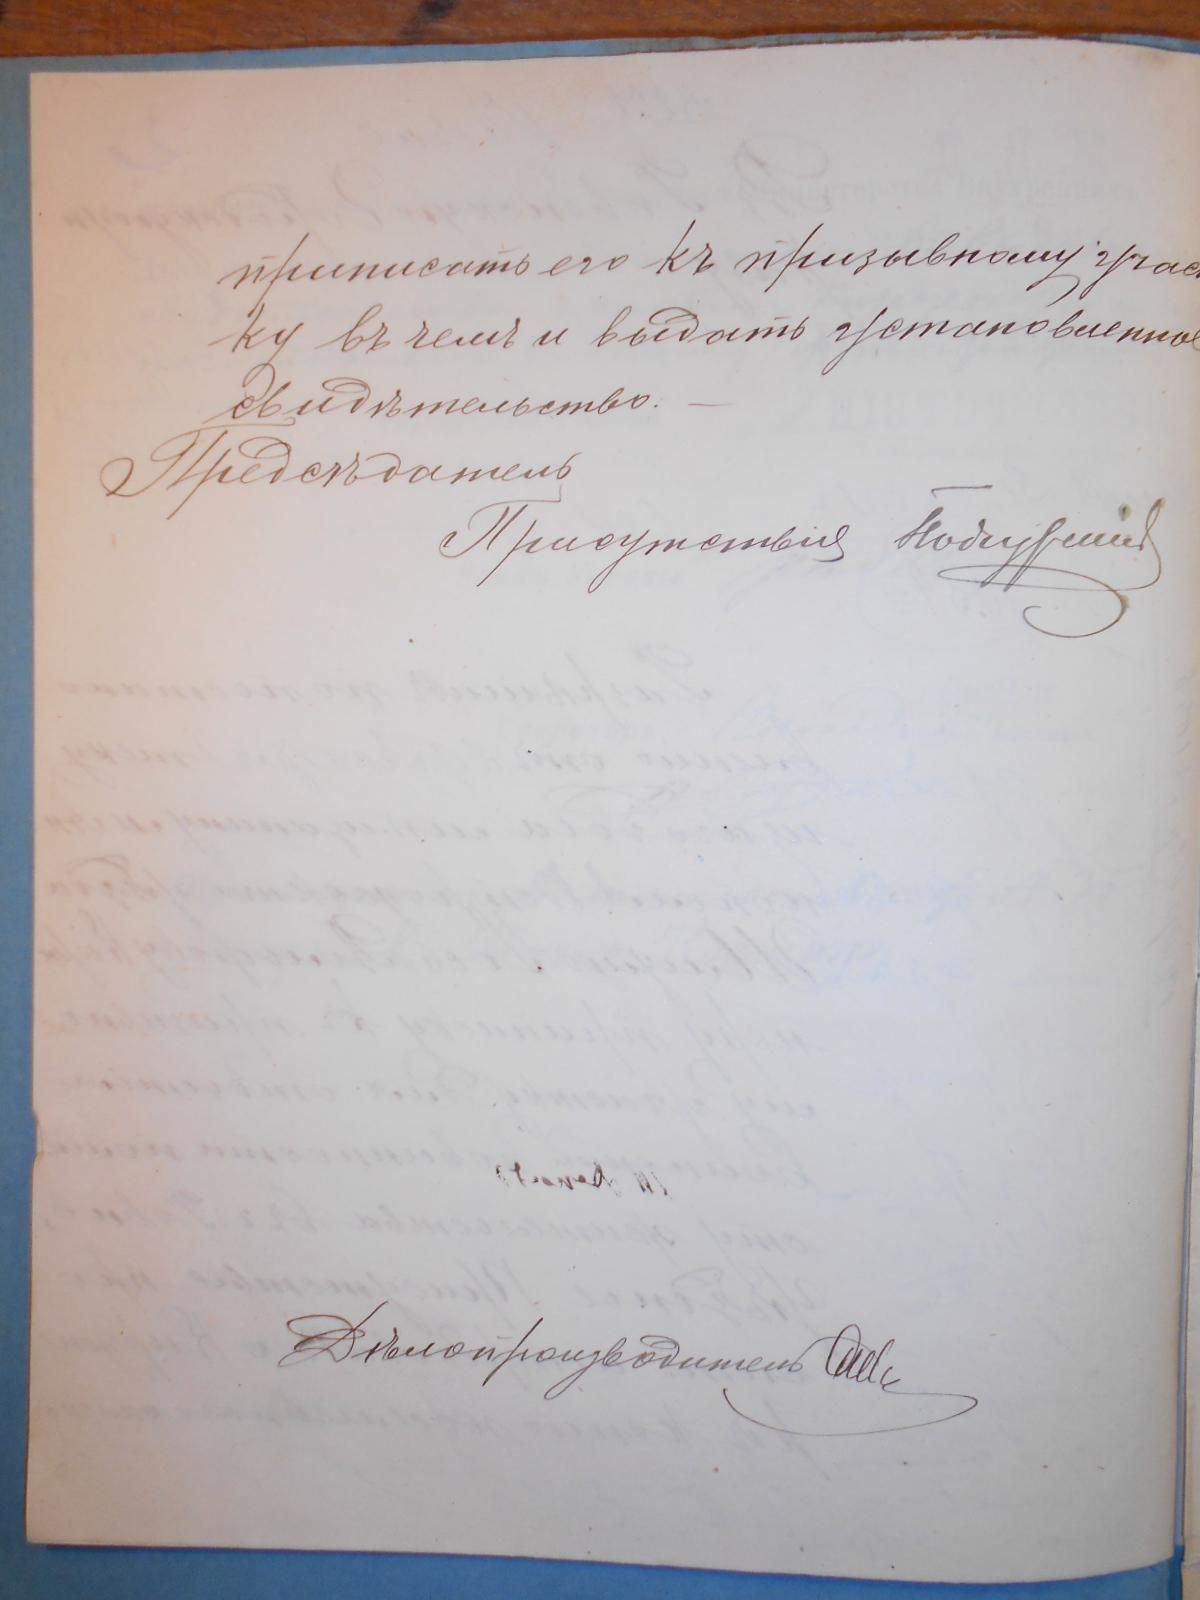 приписать его къ призывному учас
ку въ чемъ и выдать установленное
свидѣтельство. —
Предсѣдатель
Присутствія
Дѣлопроизводитель